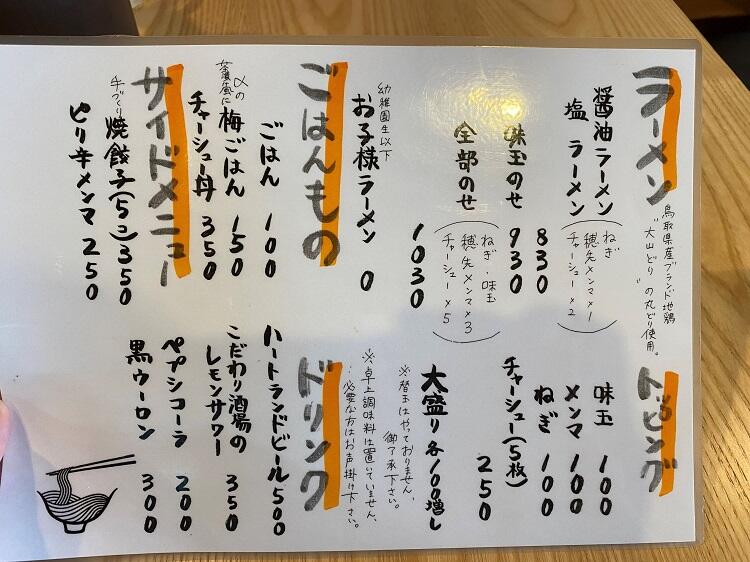 ラーメン
鳥取県産ブランド地鶏
"大山どり"の丸どり使用。
醤油ラーメン
塩 ラーメン
830
ねぎ
穂先メンマ×1
チャーシュー×2
味玉のせ 930
全部のせ 1030
ねぎ・味玉
穂先メンマ×3
チャーシュー×5
幼稚園生以下
お子様ラーメン 0
ごはんもの
ごはん 100
〆の
茶漬風に
梅ごはん 150
チャーシュー丼 350
サイドメニュー
手づくり
焼餃子(5コ) 350
ピリ辛メンマ 250
トッピング
味玉 100
メンマ 100
ねぎ 100
チャーシュー(5枚) 250
大盛り各100増し
※替玉はやっておりません、
御了承下さい。
※卓上調味料は置いていません、
必要な方はお声掛け下さい。
ドリンク
ハートランドビール 500
こだわり酒場の
レモンサワー 350
ペプシコーラ 200
黒ウーロン 300